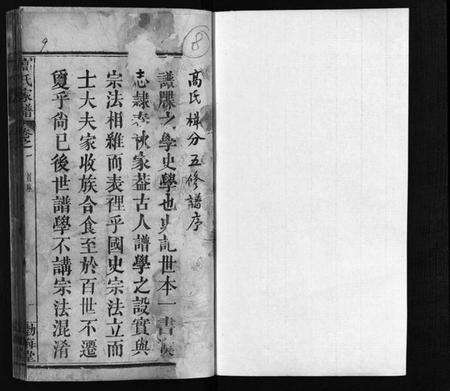 8
9
高氏梯分五修譜序
譜牒之學史學也史記世本一書
志隸春秋家葢古人譜學之設實與
宗法相維而表裡乎國史宗法立而
士大夫家收族合食至於百世不遷
夐乎尙已後世譜學不講宗法混淆
高氏家譜 卷之一
渤海堂